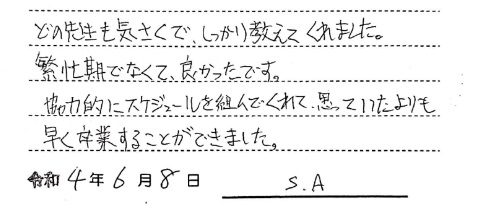 どの先生も気さくで、しっかり教えてくれました。
繁忙期でなくて、良かったです。
協力的にスケジュールを組んでくれて、思っていたよりも
早く卒業することができました。
令和 4 年 6 月 8 日 S.A